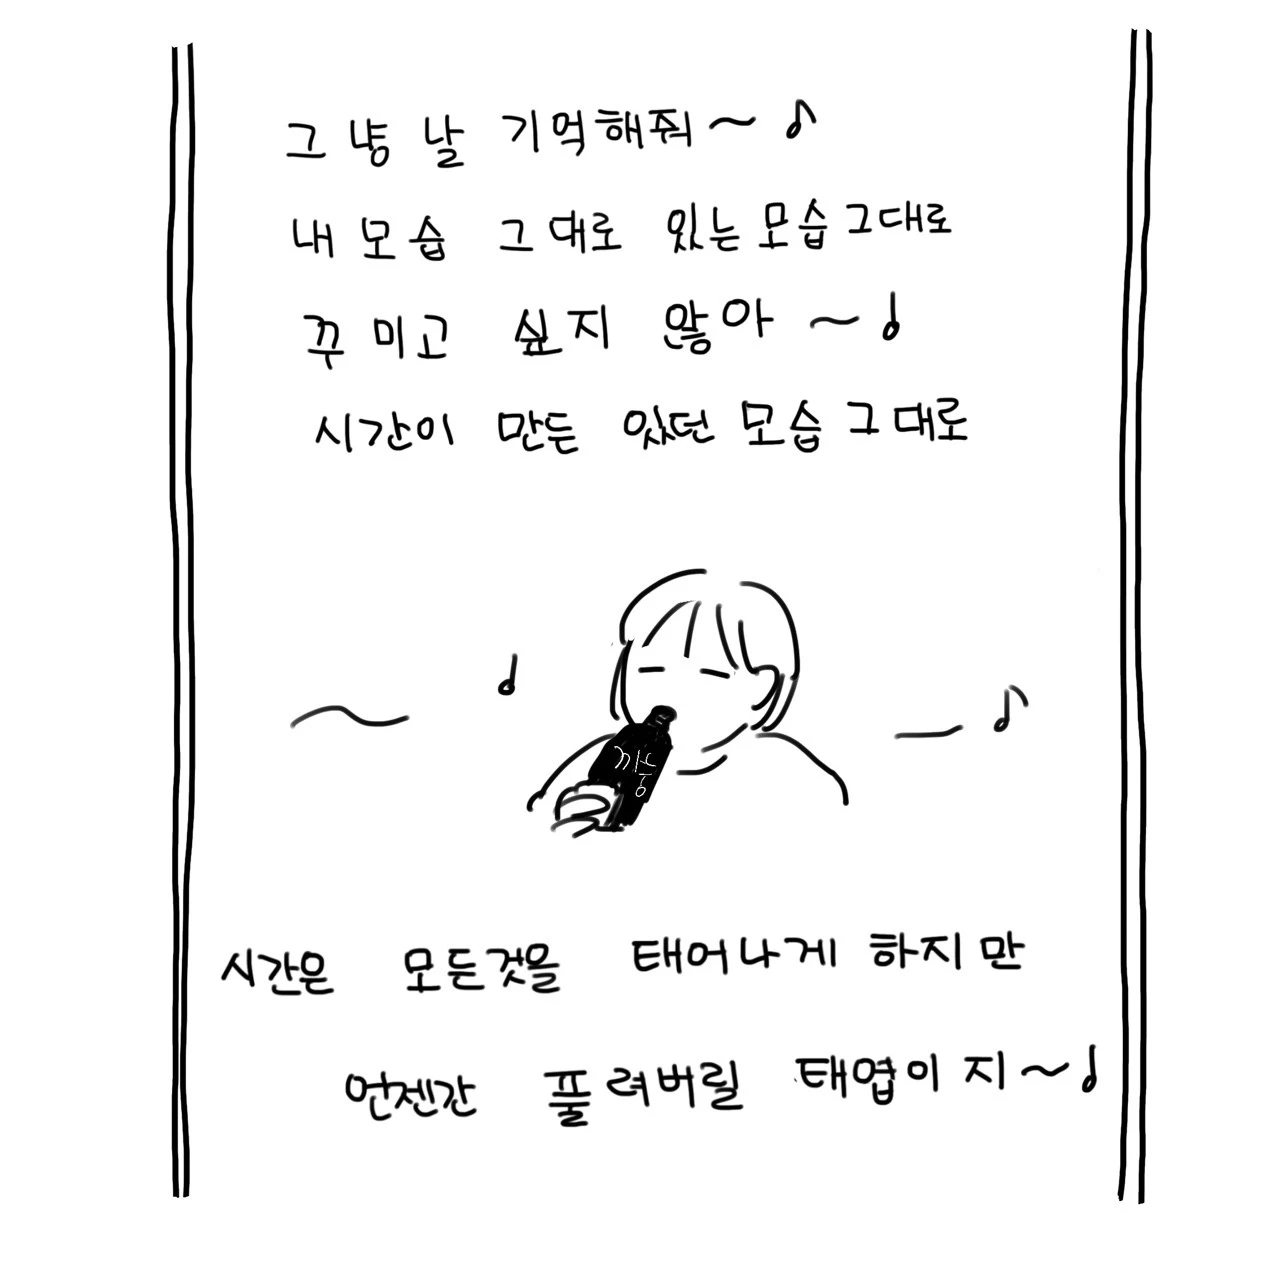 그냥 날 기억해줘~♪
내 모습 그대로 있는 모습 그대로
꾸미고 싶지 않아~♩
시간이 만든 있던 모습 그대로
까중
시간은 모든것을 태어나게 하지만
언젠간 풀려버릴 태엽이지~♩